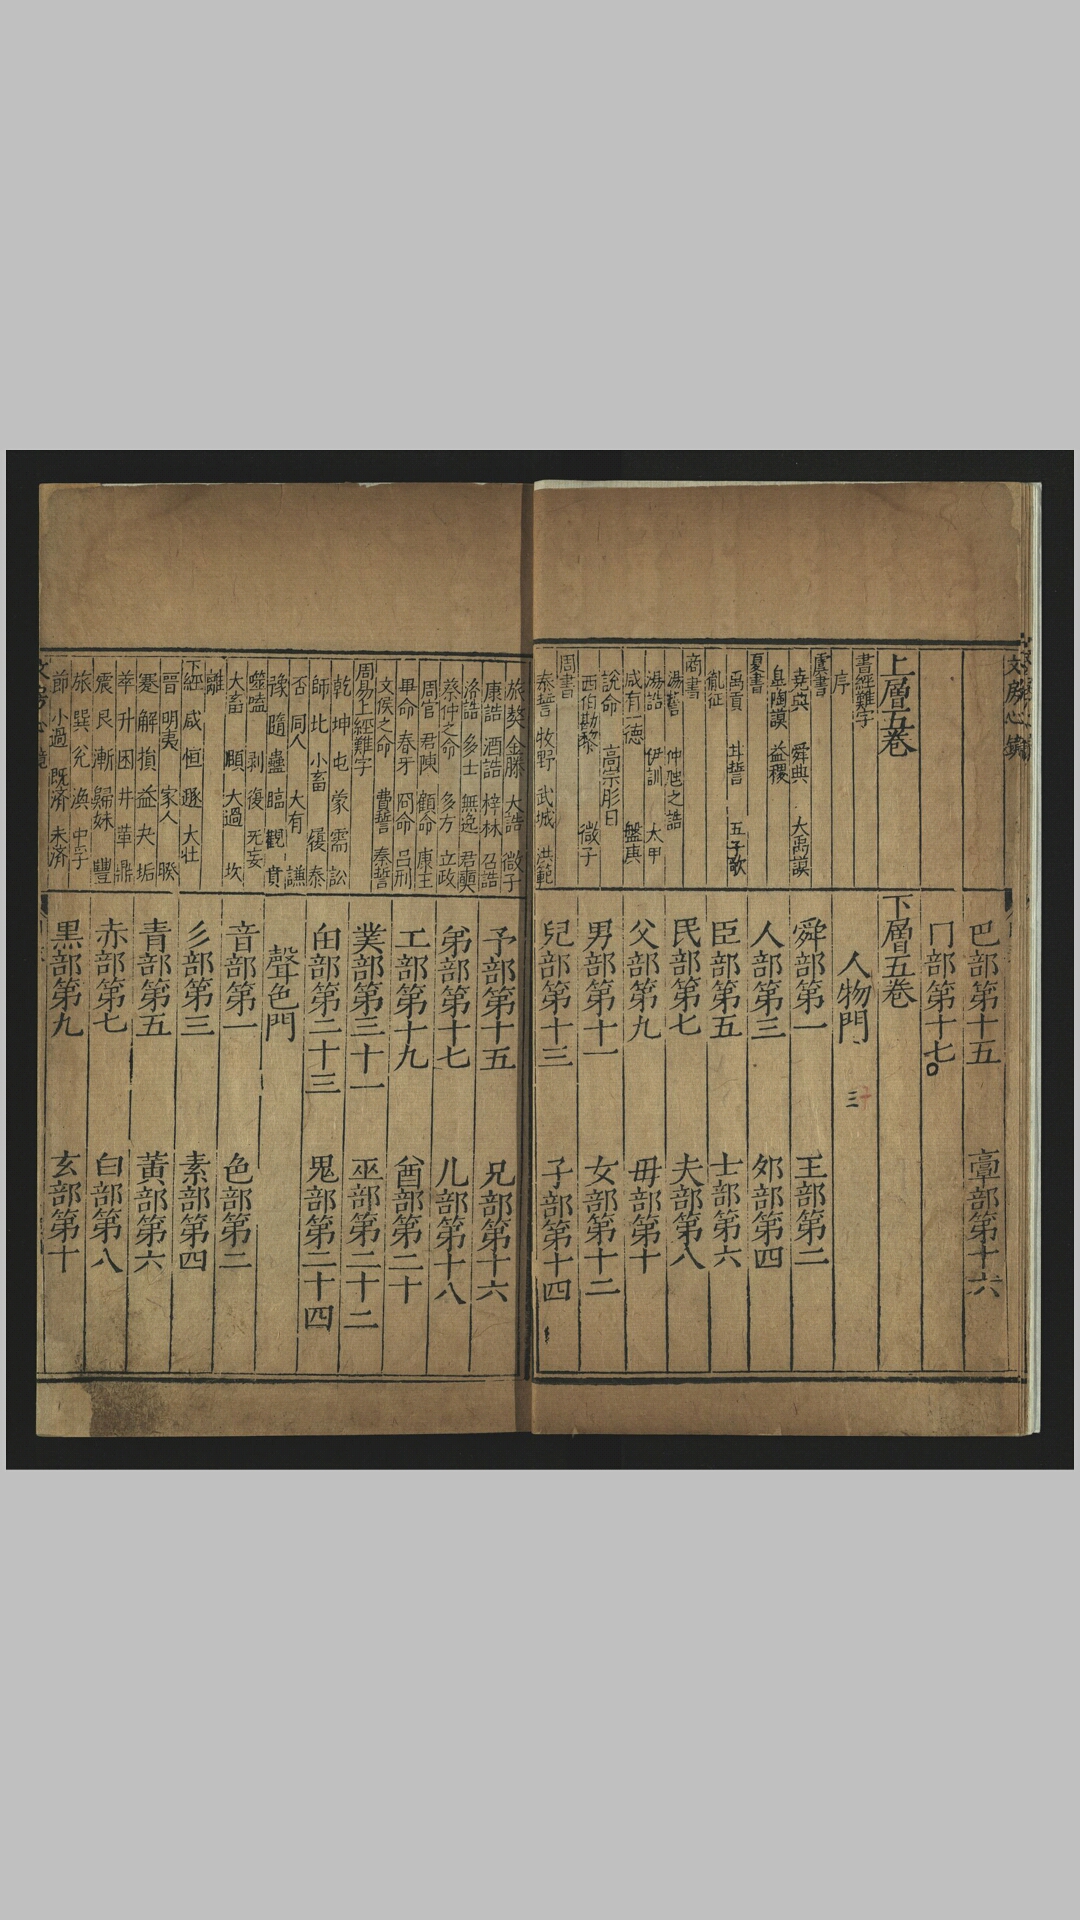 上層五卷
書經難字
序
虞書
堯典 舜典 大禹謨
臯陶謨 益稷
夏書
禹貢 甘誓 五子歌
胤征
商書
湯誓 仲虺之誥
湯誥 伊訓 太甲
咸有一德 盤庚
說命 高宗肜日
西伯勘黎 微子
周書
泰誓 牧野 武城 洪範
巴部第十五 𩫖部第十六
冂部第十七
下層五卷
人物門
舜部第一 王部第二
人部第三 夘部第四
臣部第五 士部第六
民部第七 夫部第八
父部第九 毋部第十
男部第十一 女部第十二
兒部第十三 子部第十四
旅獒 金滕 大誥 微子
康誥 酒誥 梓林 召誥
洛誥 多士 無逸 君奭
蔡仲之命 多方 立政
周官 君陳 顧命 康王
畢命 春牙 冏命 呂刑
文侯之命 費誓 秦誓
周易上經難字
乾 坤 屯 蒙 需 訟
師 比 小畜 履 泰
否 同人 大有 謙
豫 隨 蠱 臨 觀 賁
噬嗑 剥 復 无妄
大畜 頤 大過 坎
離
下經 咸 恒 遯 大壮
晉 明夷 家人 睽
蹇 解 損 益 夬 垢
萃 升 困 井 革 鼎
震 艮 漸 歸妹 豐
旅 巽 兊 渙 中孚
節 小過 既濟 未濟
予部第十五 兄部第十六
弟部第十七 儿部第十八
工部第十九 酋部第二十
菐部第三十一 巫部第二十二
甶部第二十三 鬼部第二十四
聲色門
音部第一 色部第二
彡部第三 素部第四
青部第五 黃部第六
赤部第七 白部第八
黒部第九 玄部第十